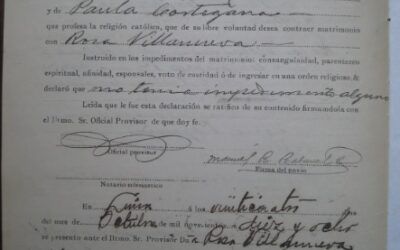 y de Paula Cortegana
que profesa la religión católica, que de su libre voluntad desea contraer matrimonio
con Rosa Villanueva
Instruido en los impedimentos del matrimonio consanguinidad, parentesco
espiritual, afinidad, esponsales, voto de castidad ó de ingresar en una orden religiosa, &
declaró que no tenía impedimento alguno
Leida que le fue esta declaración se ratificó de su contenido firmándola con
el Iltmo. Sr. Oficial Provisor de que doy fe.
Oficial provisor
Firma del novio
Notario eclesiástico
En Lima á los veinticuatro
del mes de Octubre de mil novecientos diez y ocho
se presentó ante el Iltmo. Sr. Provisor Da Rosa Villanueva